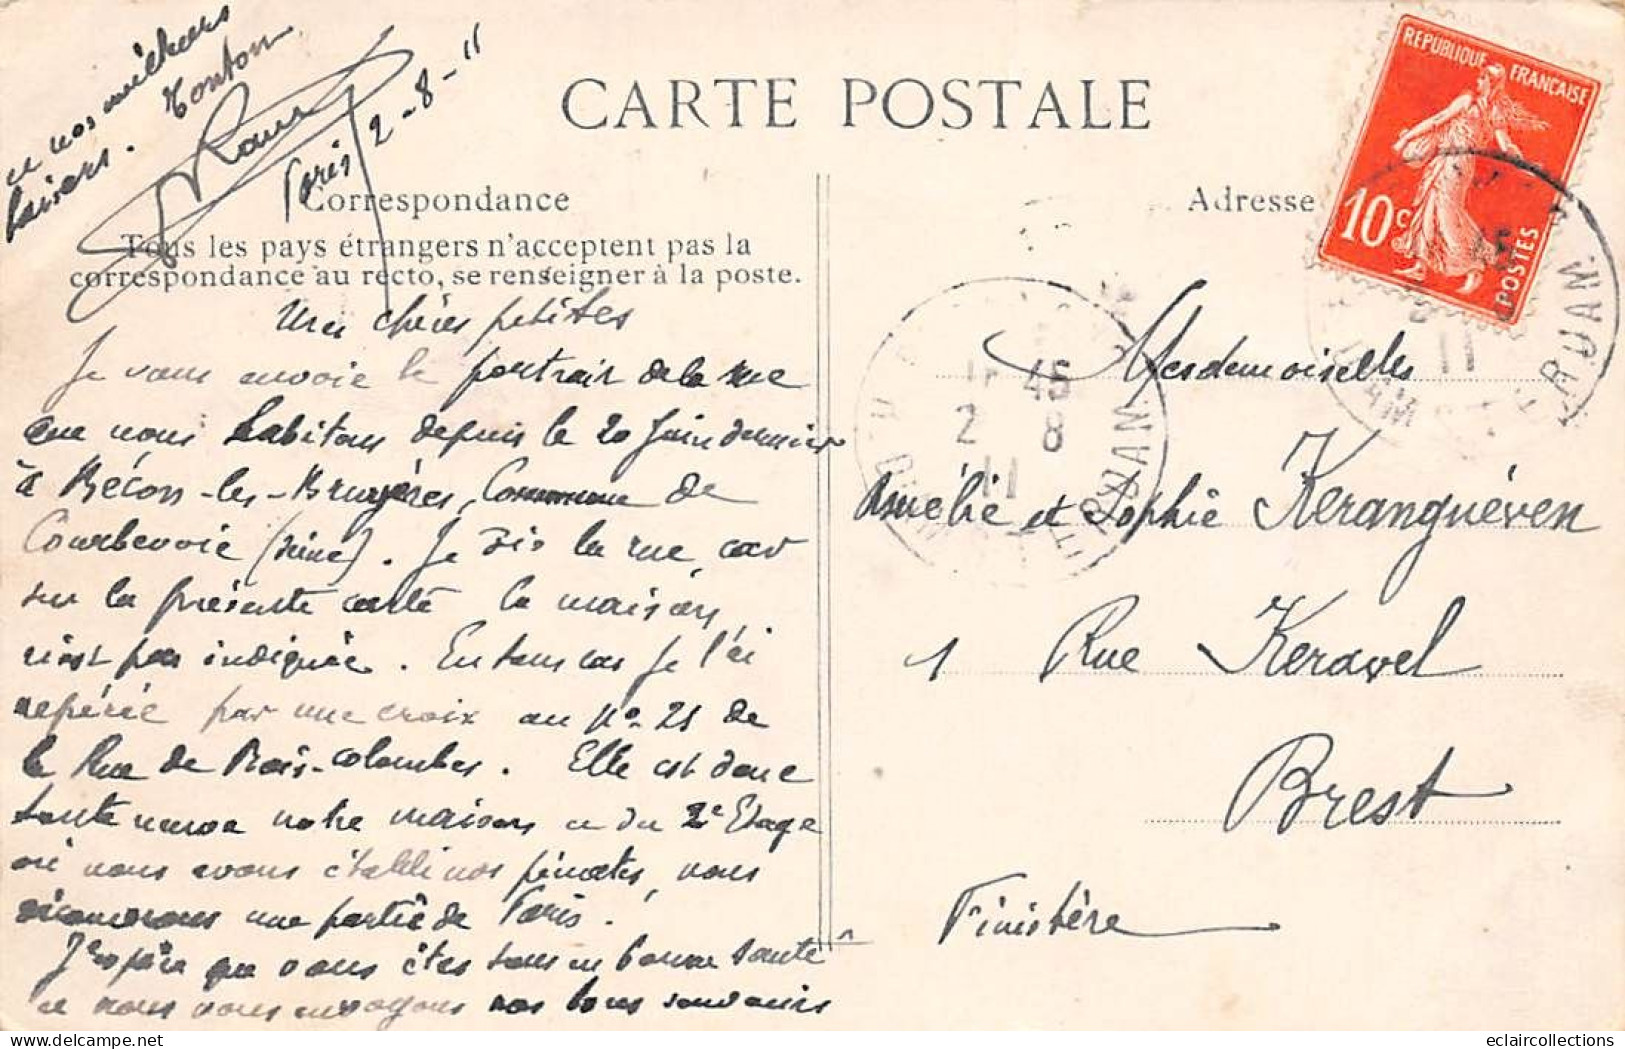 CARTE POSTALE
Correspondance
Tous les pays étrangers n'acceptent pas la
correspondance au recto, se renseigner à la poste.
Adresse
RÉPUBLIQUE FRANÇAISE
10c
POSTES
45
2 8
11
Mes chères petites
Je vous envoie le portrait de la rue
que nous habitons depuis le 20 Juin dernier
à Bécon-les-Bruyères, Commune de
Courbevoie (Seine). Je dis la rue, car
sur la présente carte la maison
n'est pas indiquée. En tous cas je l'ai
repérée par une croix au No 21 de
la Rue de Bois-Colombes. Elle est donc
notre maison et du 2e Etage
où nous avons établi nos pénates, nous
une partie de Paris.
J'espère que vous êtes tous en bonne santé
et nous vous envoyons nos bons souvenirs
et nos meilleurs
baisers. Tonton
Paris 2-8-11
Mesdemoiselles
Amélie et Sophie Keranguéven
1 Rue Keravel
Brest
Finistère
eclaircollections